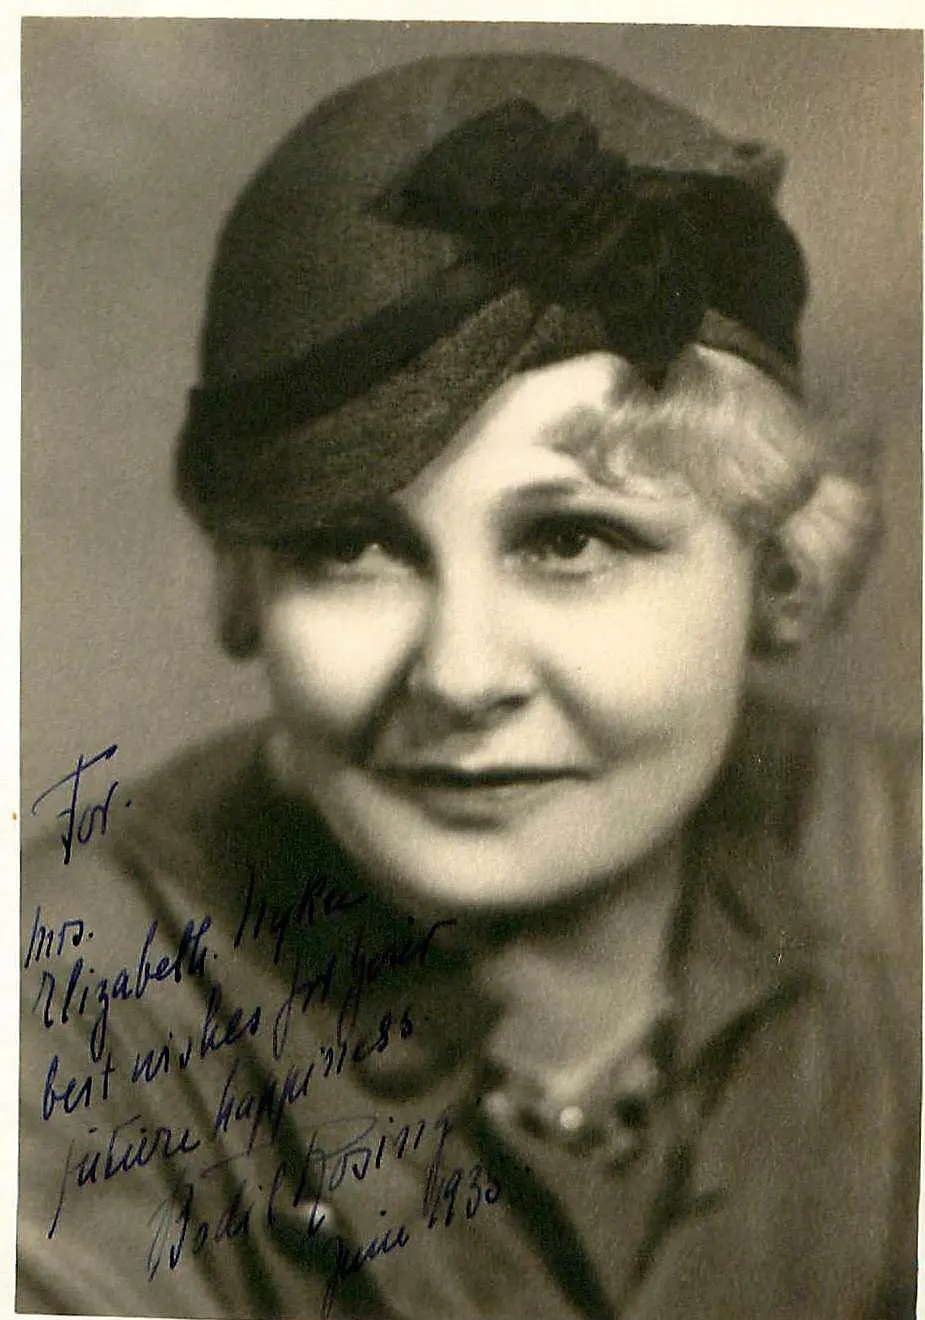 For.
Mrs.
Elizabeth. Nyka
best wishes for your
future happiness.
Bodil Rosing
June 1935.